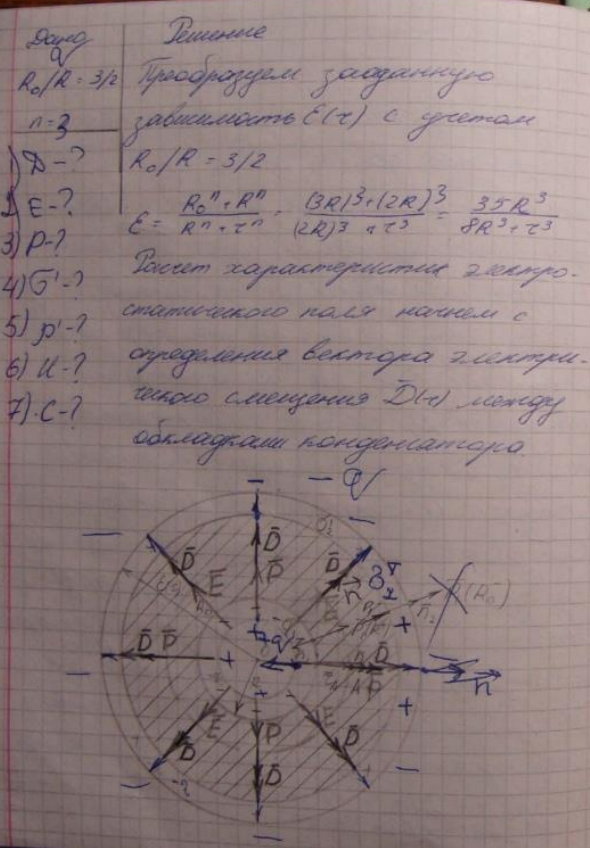 Дано
Решение
q
R₀/R = 3/2
n = 3
1) D - ?
2) E - ?
3) P - ?
4) σ' - ?
5) ρ' - ?
6) U - ?
7) C - ?
Преобразуем заданную
зависимость ε(r) с учетом
R₀/R = 3/2
ε = R₀ⁿ + Rⁿ / Rⁿ + rⁿ = (3R)³ + (2R)³ / (2R)³ + r³ = 35R³ / 8R³ + r³
Расчет характеристик электро-
статического поля начнем с
определения вектора электри-
ческого смещения D̄(r) между
обкладками конденсатора.
− − q
− −
σ'₂
D̄ D̄ D̄
E̅ P̄ n̄
(R₀)
n̄₂
+q +
D̄ P̄ + D̄
− P̄ n̄
+ +
E̅ P̄ E̅
D̄ D̄ D̄
− − −